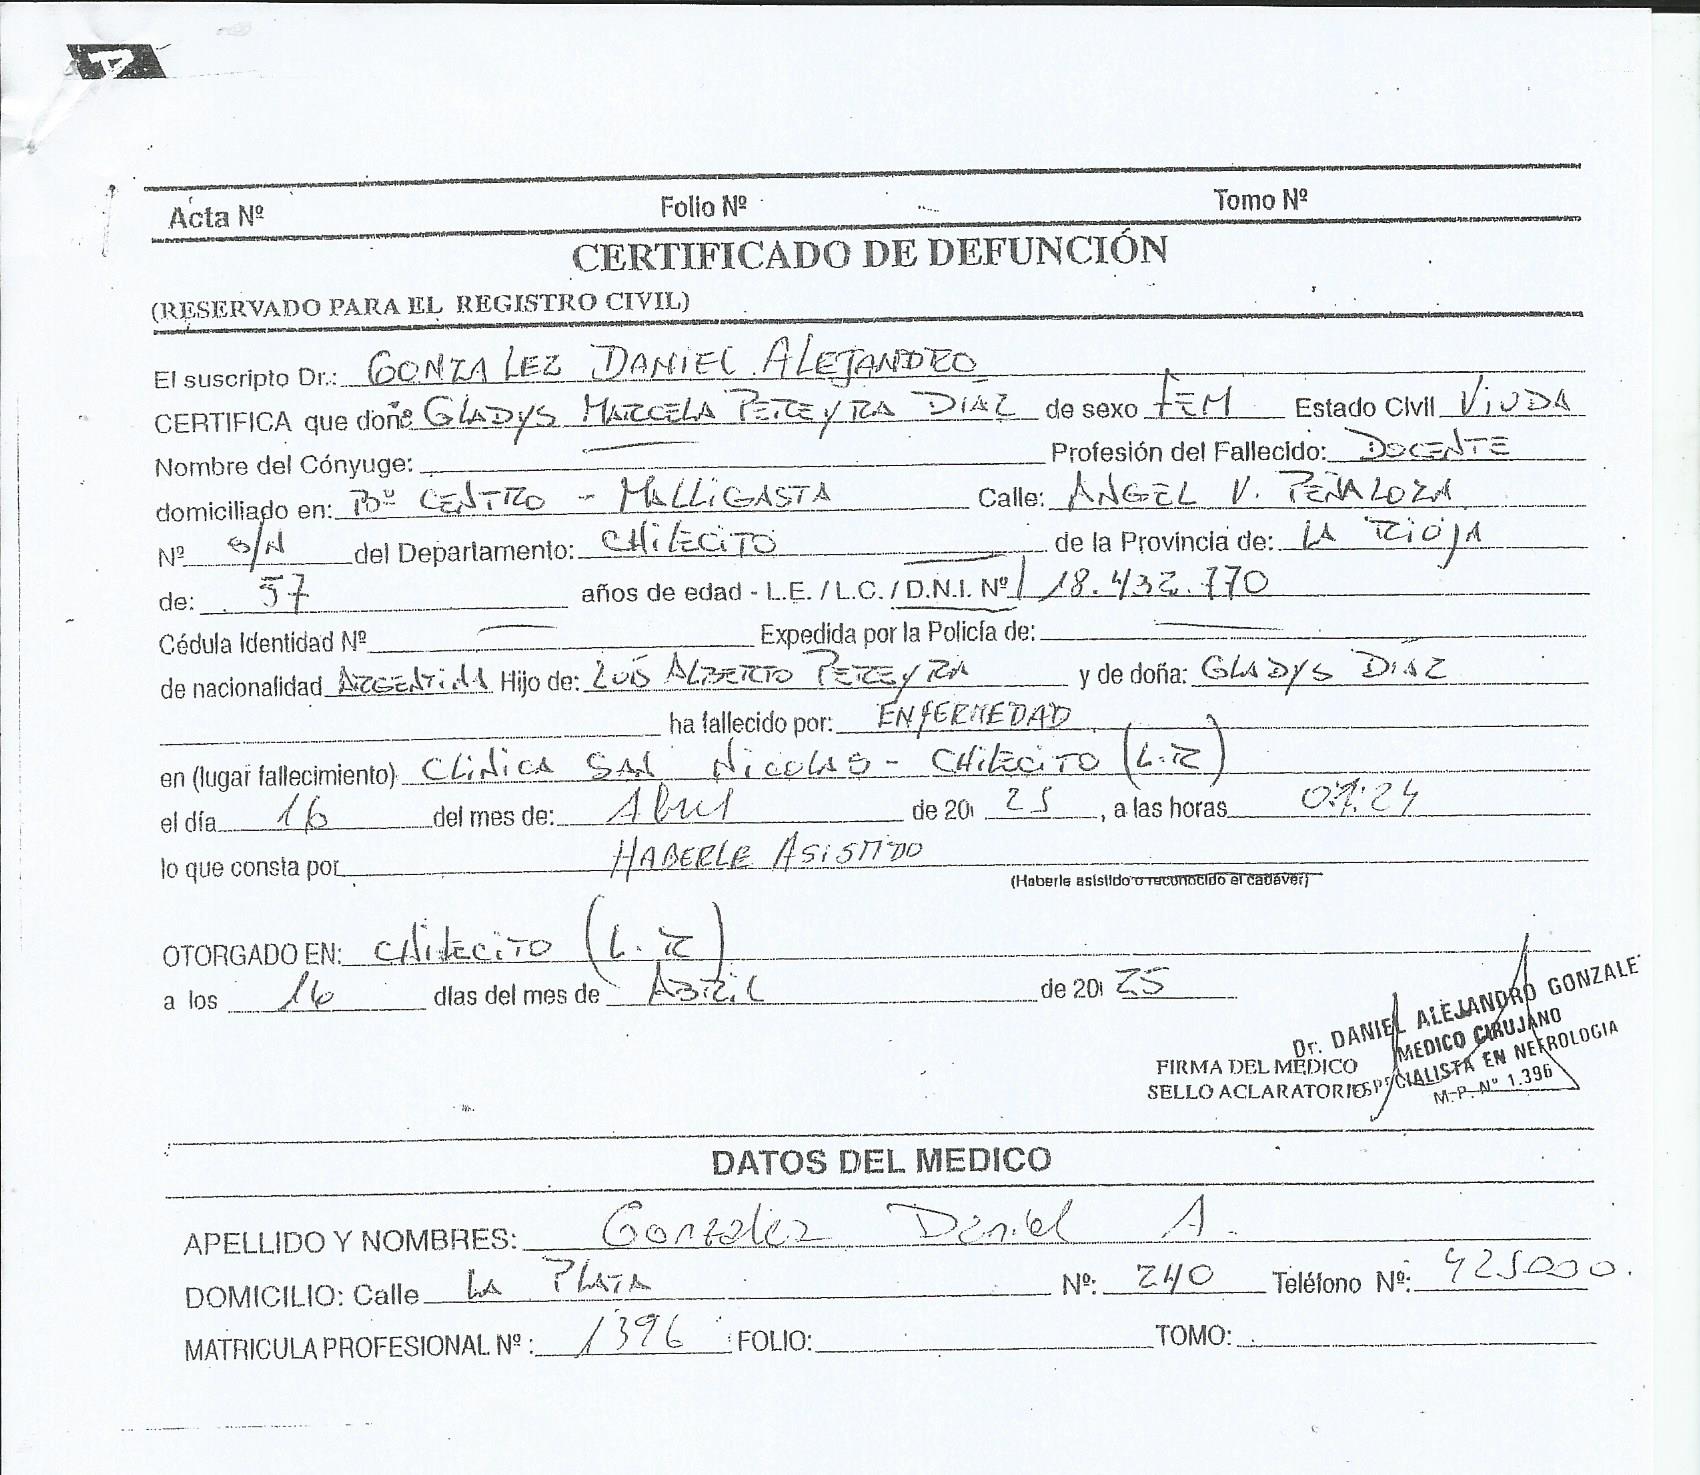 Acta Nº Folio Nº Tomo Nº
CERTIFICADO DE DEFUNCIÓN
(RESERVADO PARA EL REGISTRO CIVIL)
El suscripto Dr.: GONZALEZ DANIEL ALEJANDRO
CERTIFICA que doña GLADYS MARCELA PEREYRA DIAZ de sexo FEM Estado Civil VIUDA
Nombre del Cónyuge: Profesión del Fallecido: DOCENTE
domiciliado en: Bº CENTRO - MALLIGASTA Calle: ANGEL V. PEÑALOZA
Nº S/N del Departamento: CHILECITO de la Provincia de: LA RIOJA
de: 57 años de edad - L.E. / L.C. / D.N.I. Nº 18.432.770
Cédula Identidad Nº Expedida por la Policía de:
de nacionalidad ARGENTINA Hijo de: LUIS ALBERTO PEREYRA y de doña: GLADYS DIAZ
ha fallecido por: ENFERMEDAD
en (lugar fallecimiento) CLINICA SAN NICOLAS - CHILECITO (L.R)
el día 16 del mes de: Abril de 20 25, a las horas
lo que consta por HABERLE ASISTIDO
(Haberle asistido o reconocido el cadáver)
OTORGADO EN: CHILECITO (L.R)
a los 16 días del mes de ABRIL de 20 25
Dr. DANIEL ALEJANDRO GONZALE
MEDICO CIRUJANO
ESPECIALISTA EN NEFROLOGIA
M.P. Nº 1.396
FIRMA DEL MEDICO
SELLO ACLARATORIO
DATOS DEL MEDICO
APELLIDO Y NOMBRES: Gonzalez Daniel A.
DOMICILIO: Calle LA PLATA Nº: 240 Teléfono Nº: 425000.
MATRICULA PROFESIONAL Nº : 1396 FOLIO: TOMO: